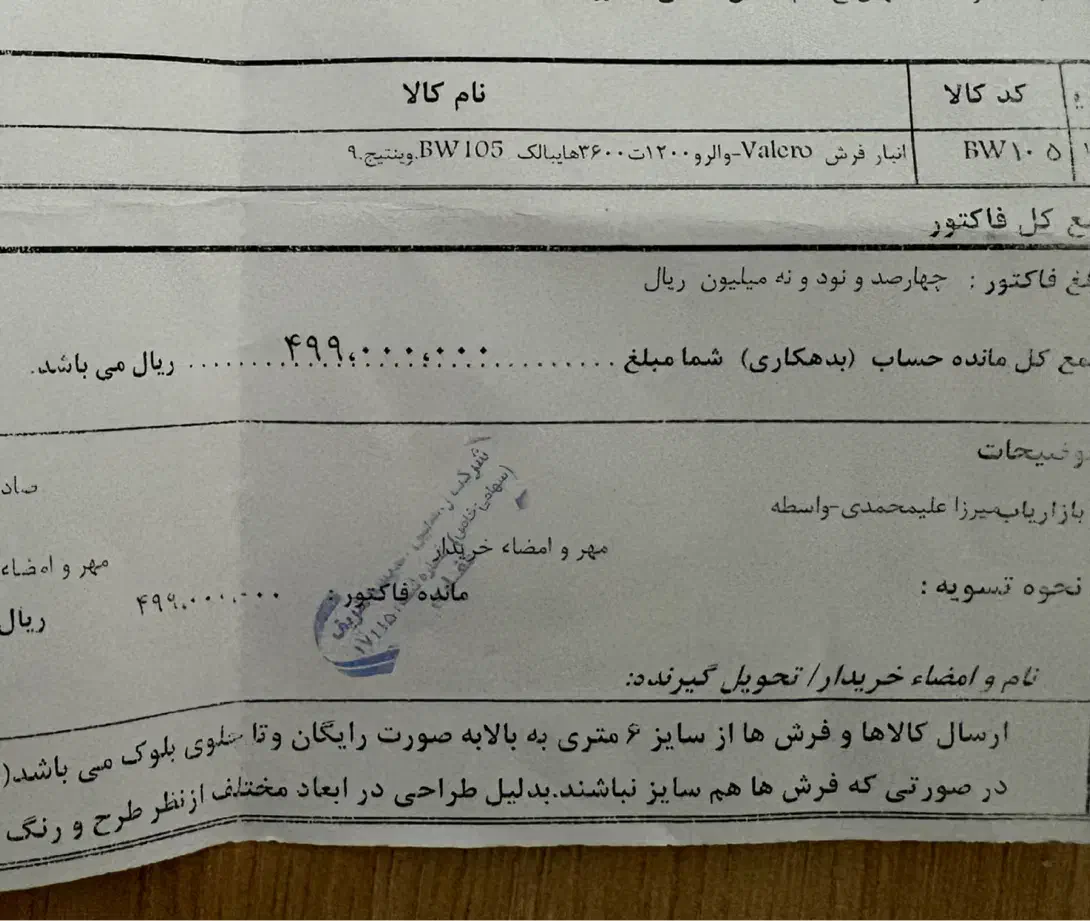 کد کالا نام کالا
BW۱۰۵ انبار فرش Valero-والرو۱۲۰۰ت۳۶۰۰هایبالک BW105.وینتیج.۹
کل فاکتور
فاکتور : چهارصد و نود و نه میلیون ریال
کل مانده حساب (بدهکاری) شما مبلغ ..........۴۹۹،۰۰۰،۰۰۰.......... ریال می باشد.
بازاریاب:میرزا علیمحمدی-واسطه
مهر و امضاء خریدار
مهر و امضاء
نحوه تسویه :
مانده فاکتور : ۴۹۹،۰۰۰،۰۰۰
ریال
نام و امضاء خریدار/ تحویل گیرنده:
ارسال کالاها و فرش ها از سایز ۶ متری به بالابه صورت رایگان و تا جلوی بلوک می باشد(
در صورتی که فرش ها هم سایز نباشند.بدلیل طراحی در ابعاد مختلف ازنظر طرح و رنگ